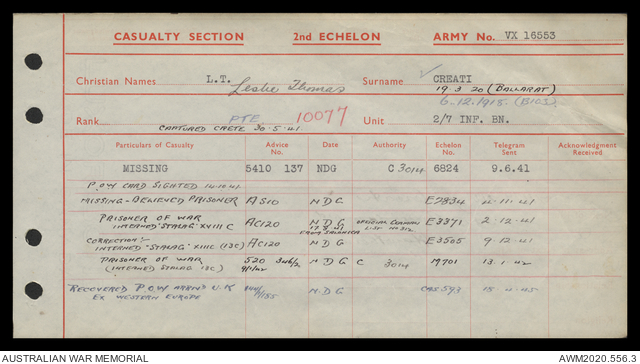 CASUALTY SECTION 2nd ECHELON ARMY No. VX 16553
Christian Names L.T. Leslie Thomas Surname CREATI
19.3.20 (BALLARAT)
6-12-1918 (BIOS)
Rank PTE 10077 Unit 2/7 INF. BN.
CAPTURED CRETE 30.5.41
Particulars of Casualty Advice No. Date Authority Echelon No. Telegram Sent Acknowledgment Received
MISSING 5410 137 NDG C 3014 6824 9.6.41
P.O.W CARD SIGHTED 14.10.41
MISSING-BELIEVED PRISONER A510 N D G E2834 4.111.41
PRISONER OF WAR AC120 N D G OFFICIAL GERMAN E3371 2.12.41
INTERNED "STALAG" XVIII C FROM SALONICA LIST No 312
CORRECTION:-
INTERNED "STALAG" XIIIC (13C) AC120 N D G E3505 9.12.41
PRISONER OF WAR 520 346/2 N D G C 3014 M701 13.1.42
(INTERNED STALAG 13C) 9/1/42
RECOVERED P.O.W ARRVD U.K N.D.G CAS.593 45
EX WESTERN EUROPE
AUSTRALIAN WAR MEMORIAL AWM2020.556.3